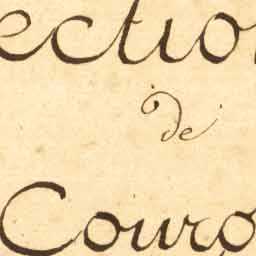 ectio
de
Courç